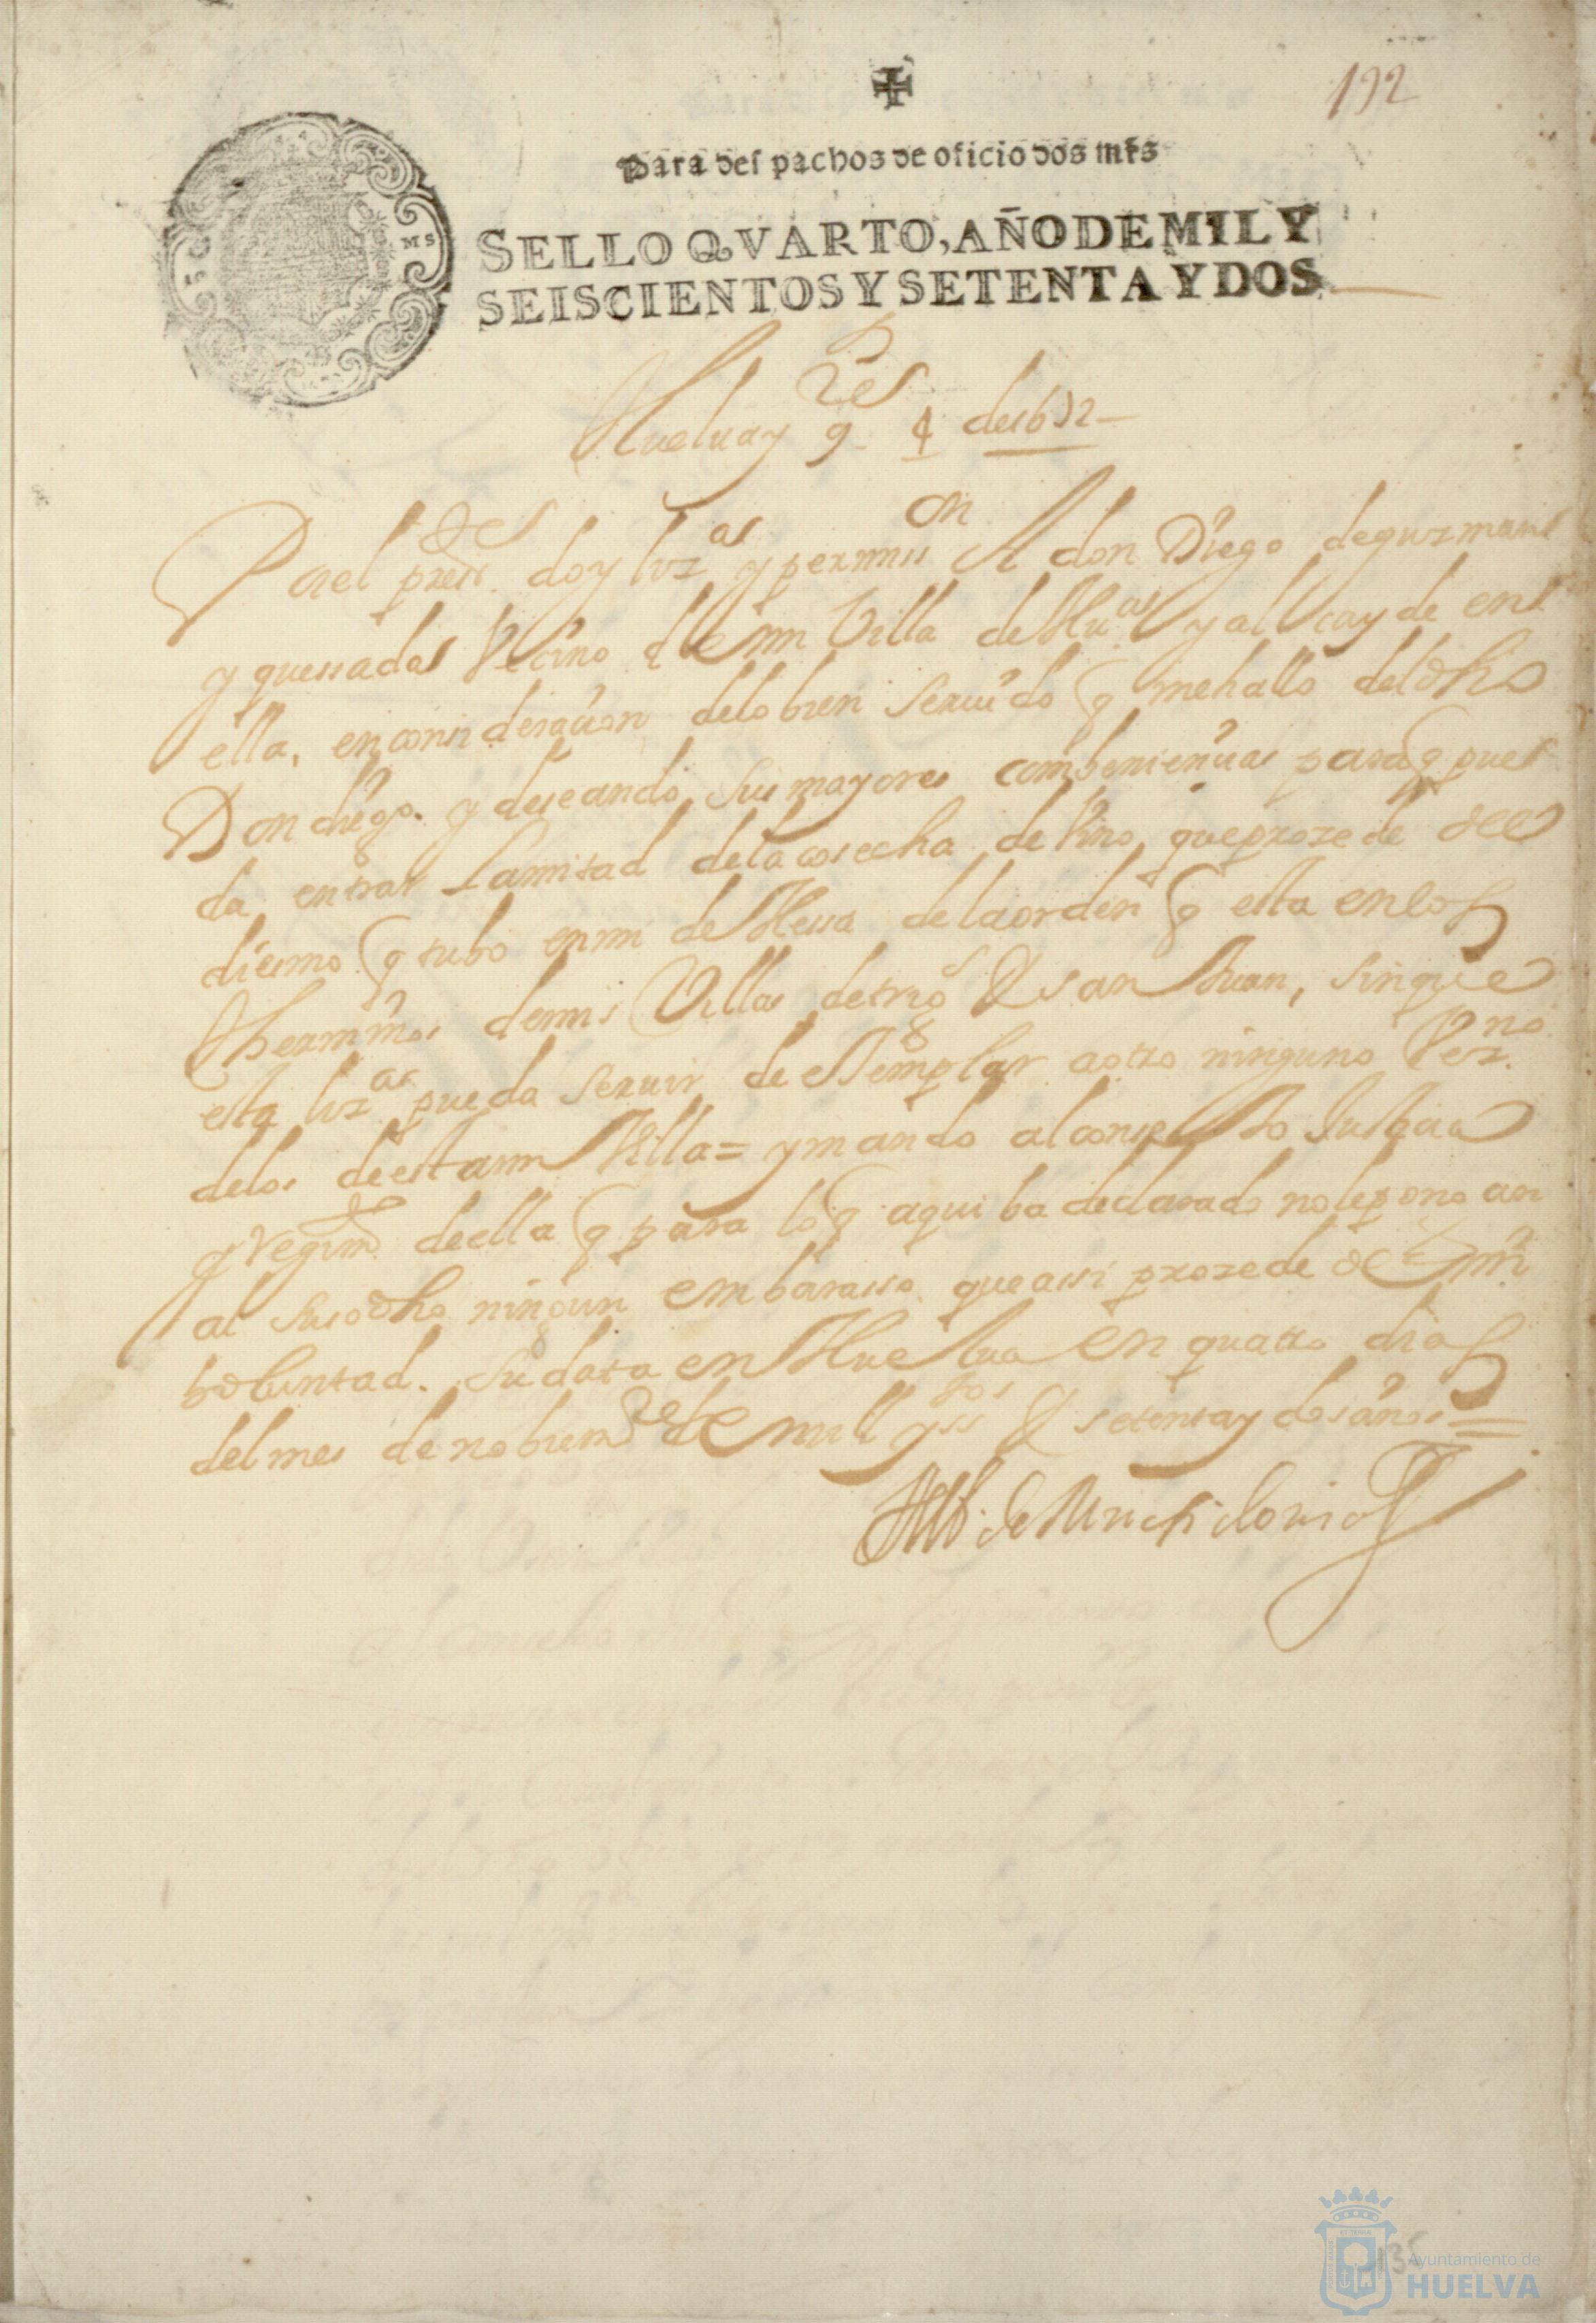 132
Para des pachos de oficio dos mrs
SELLO QVARTO, AÑO DE MIL Y
SEISCIENTOS Y SETENTA Y DOS
Huelua y 9re 4 de 1672
Por el preste doy lizas y permisson A don Diego de guzman
y quessada Vecino de mi Villa de Hua y alcayde en
ella, en consideracion de lo bien seruido q me hallo del dho
Don diego. y deseando sus mayores combeniencias para q pue
da entrar La mitad de la cosecha de Vino que prozede del
diesmo q tubo en mi deHessa de la orden q esta en los
therminos de mis Villas de trigos y san Juan, sin que
esta liza pueda seruir de eJemplar a otro ninguno Vezno
de los de esta mi Villa = y mando al consejo Justicia
y Regimto de ella q para lo q aqui ba declarado no le pongan
al susodho ningun embarasso que assi prozede de mi
boluntad. Su data en Huelua en quatro dias
del mes de nobiembre de mill y ssos y setenta y dos años =
MS
Ayuntamiento de
HUELVA